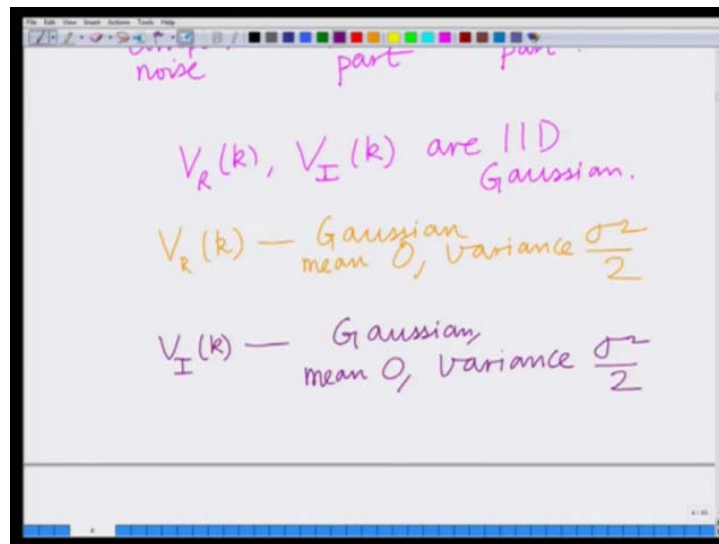 File Edit View Insert Actions Tools Help
noise part part.
V_R(k), V_I(k) are IID
Gaussian.
V_R(k) — Gaussian
mean 0, variance σ²/2
V_I(k) — Gaussian,
mean 0, variance σ²/2